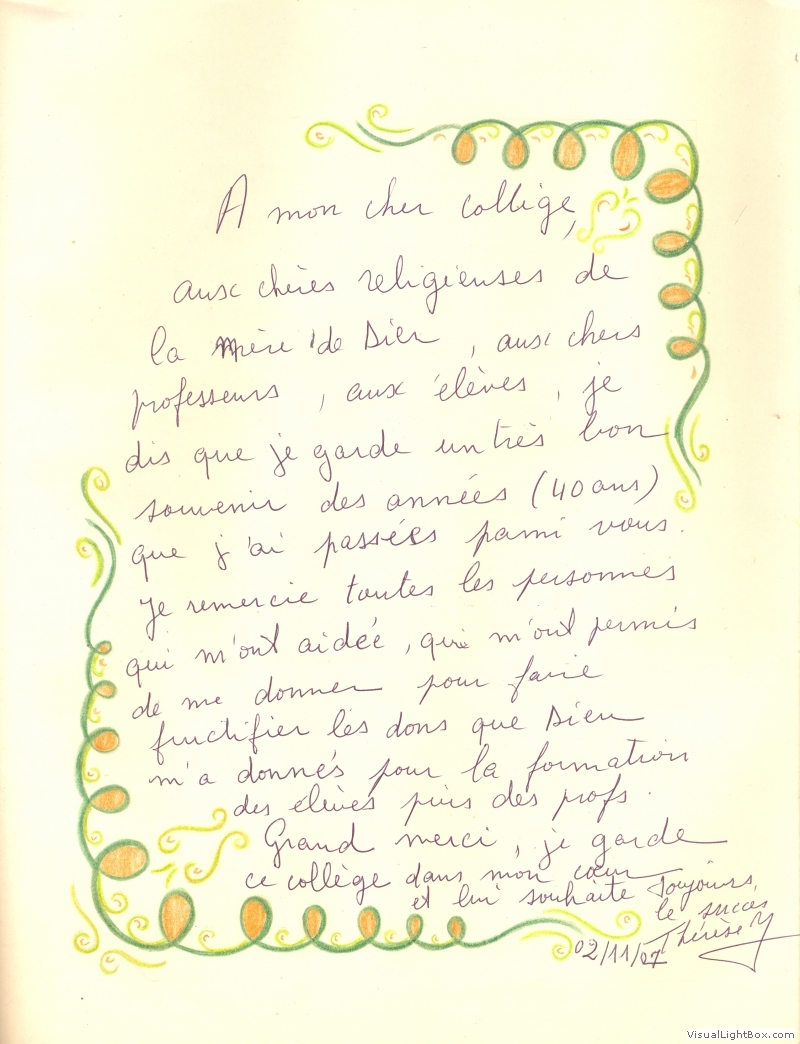 A mon cher collège,
aux chères religieuses de
la mère de Dieu, aux chers
professeurs, aux élèves, je
dis que je garde un très bon
souvenir des années (40 ans)
que j'ai passées parmi vous.
Je remercie toutes les personnes
qui m'ont aidée, qui m'ont permis
de me donner pour faire
fructifier les dons que Dieu
m'a donnés pour la formation
des élèves puis des profs.
Grand merci, je garde
ce collège dans mon cœur
et lui souhaite Toujours
le succès
Thérèse M
02/11/07
VisualLightBox.com